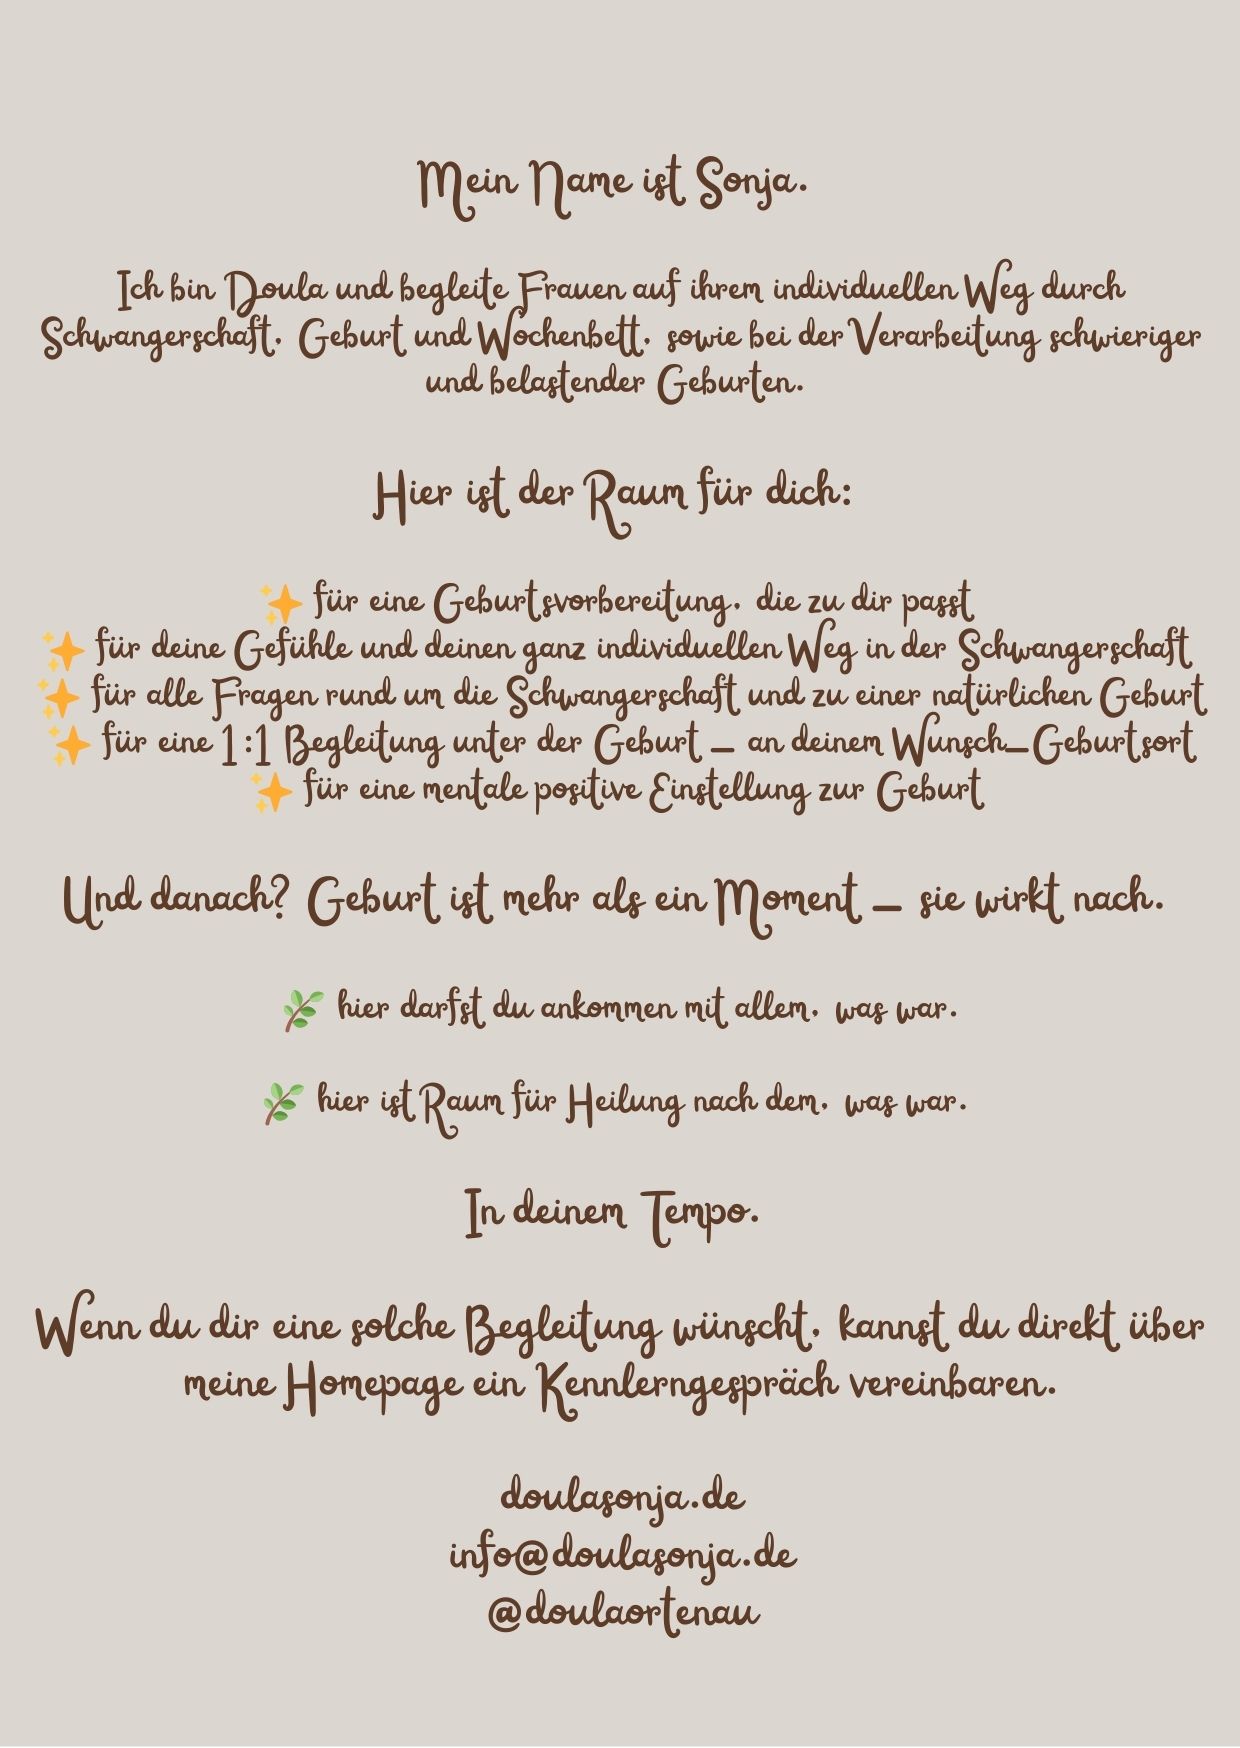 Mein Name ist Sonja.
Ich bin Doula und begleite Frauen auf ihrem individuellen Weg durch
Schwangerschaft, Geburt und Wochenbett, sowie bei der Verarbeitung schwieriger
und belastender Geburten.
Hier ist der Raum für dich:
✨ für eine Geburtsvorbereitung, die zu dir passt
✨ für deine Gefühle und deinen ganz individuellen Weg in der Schwangerschaft
✨ für alle Fragen rund um die Schwangerschaft und zu einer natürlichen Geburt
✨ für eine 1:1 Begleitung unter der Geburt – an deinem Wunsch-Geburtsort
✨ für eine mentale positive Einstellung zur Geburt
Und danach? Geburt ist mehr als ein Moment – sie wirkt nach.
🌿 hier darfst du ankommen mit allem, was war.
🌿 hier ist Raum für Heilung nach dem, was war.
In deinem Tempo.
Wenn du dir eine solche Begleitung wünscht, kannst du direkt über
meine Homepage ein Kennlerngespräch vereinbaren.
doulasonja.de
info@doulasonja.de
@doulaortenau